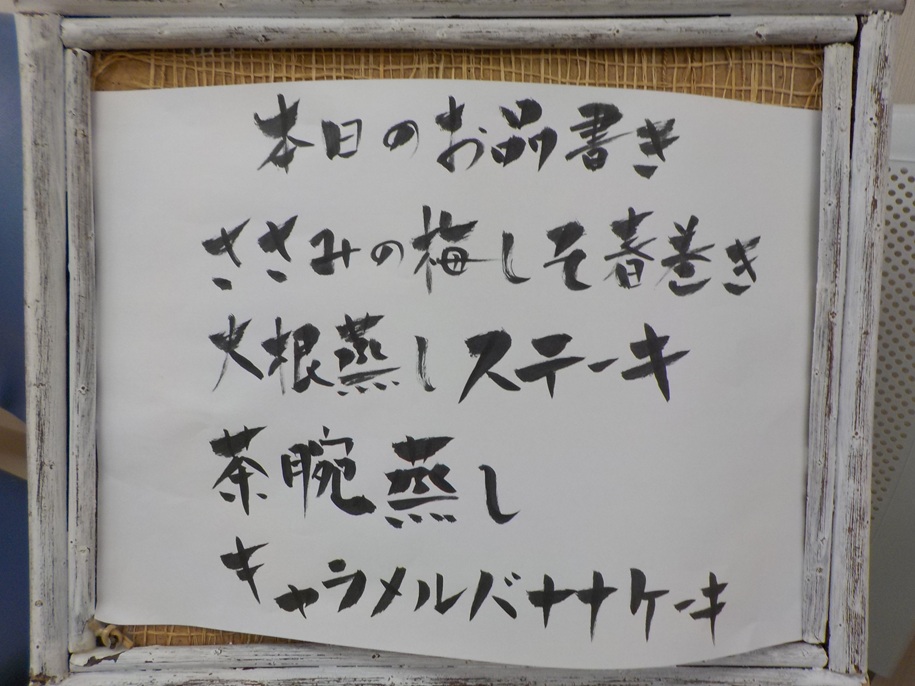 本日のお品書き
ささみの梅しそ春巻き
大根蒸しステーキ
茶腕蒸し
キャラメルバナナケーキ